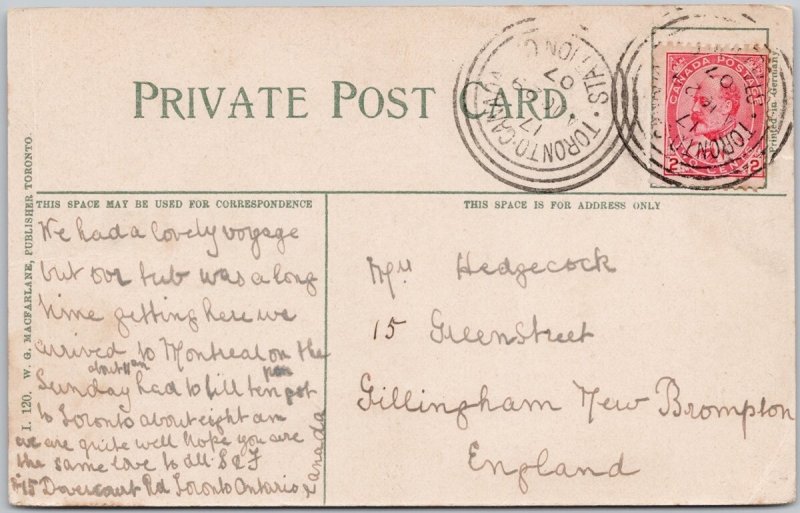 PRIVATE POST CARD
TORONTO·CANADA
STATION C
17
07
TORONTO
17
07
CANADA POSTAGE
2 TWO CENTS 2
Printed in Germany
I. 120. W. G. MACFARLANE, PUBLISHER TORONTO.
THIS SPACE MAY BE USED FOR CORRESPONDENCE
THIS SPACE IS FOR ADDRESS ONLY
We had a lovely voyage
but our tub was a long
time getting here we
arrived to Montreal on the
about 11 am pm
Sunday had to till ten got
to Toronto about eight am
we are quite well hope you are
the same love to all S & F
15 Dovercourt Rd Toronto Ontario
Canada
Mrs Hedgecock
15 Green Street
Gillingham New Brompton
England